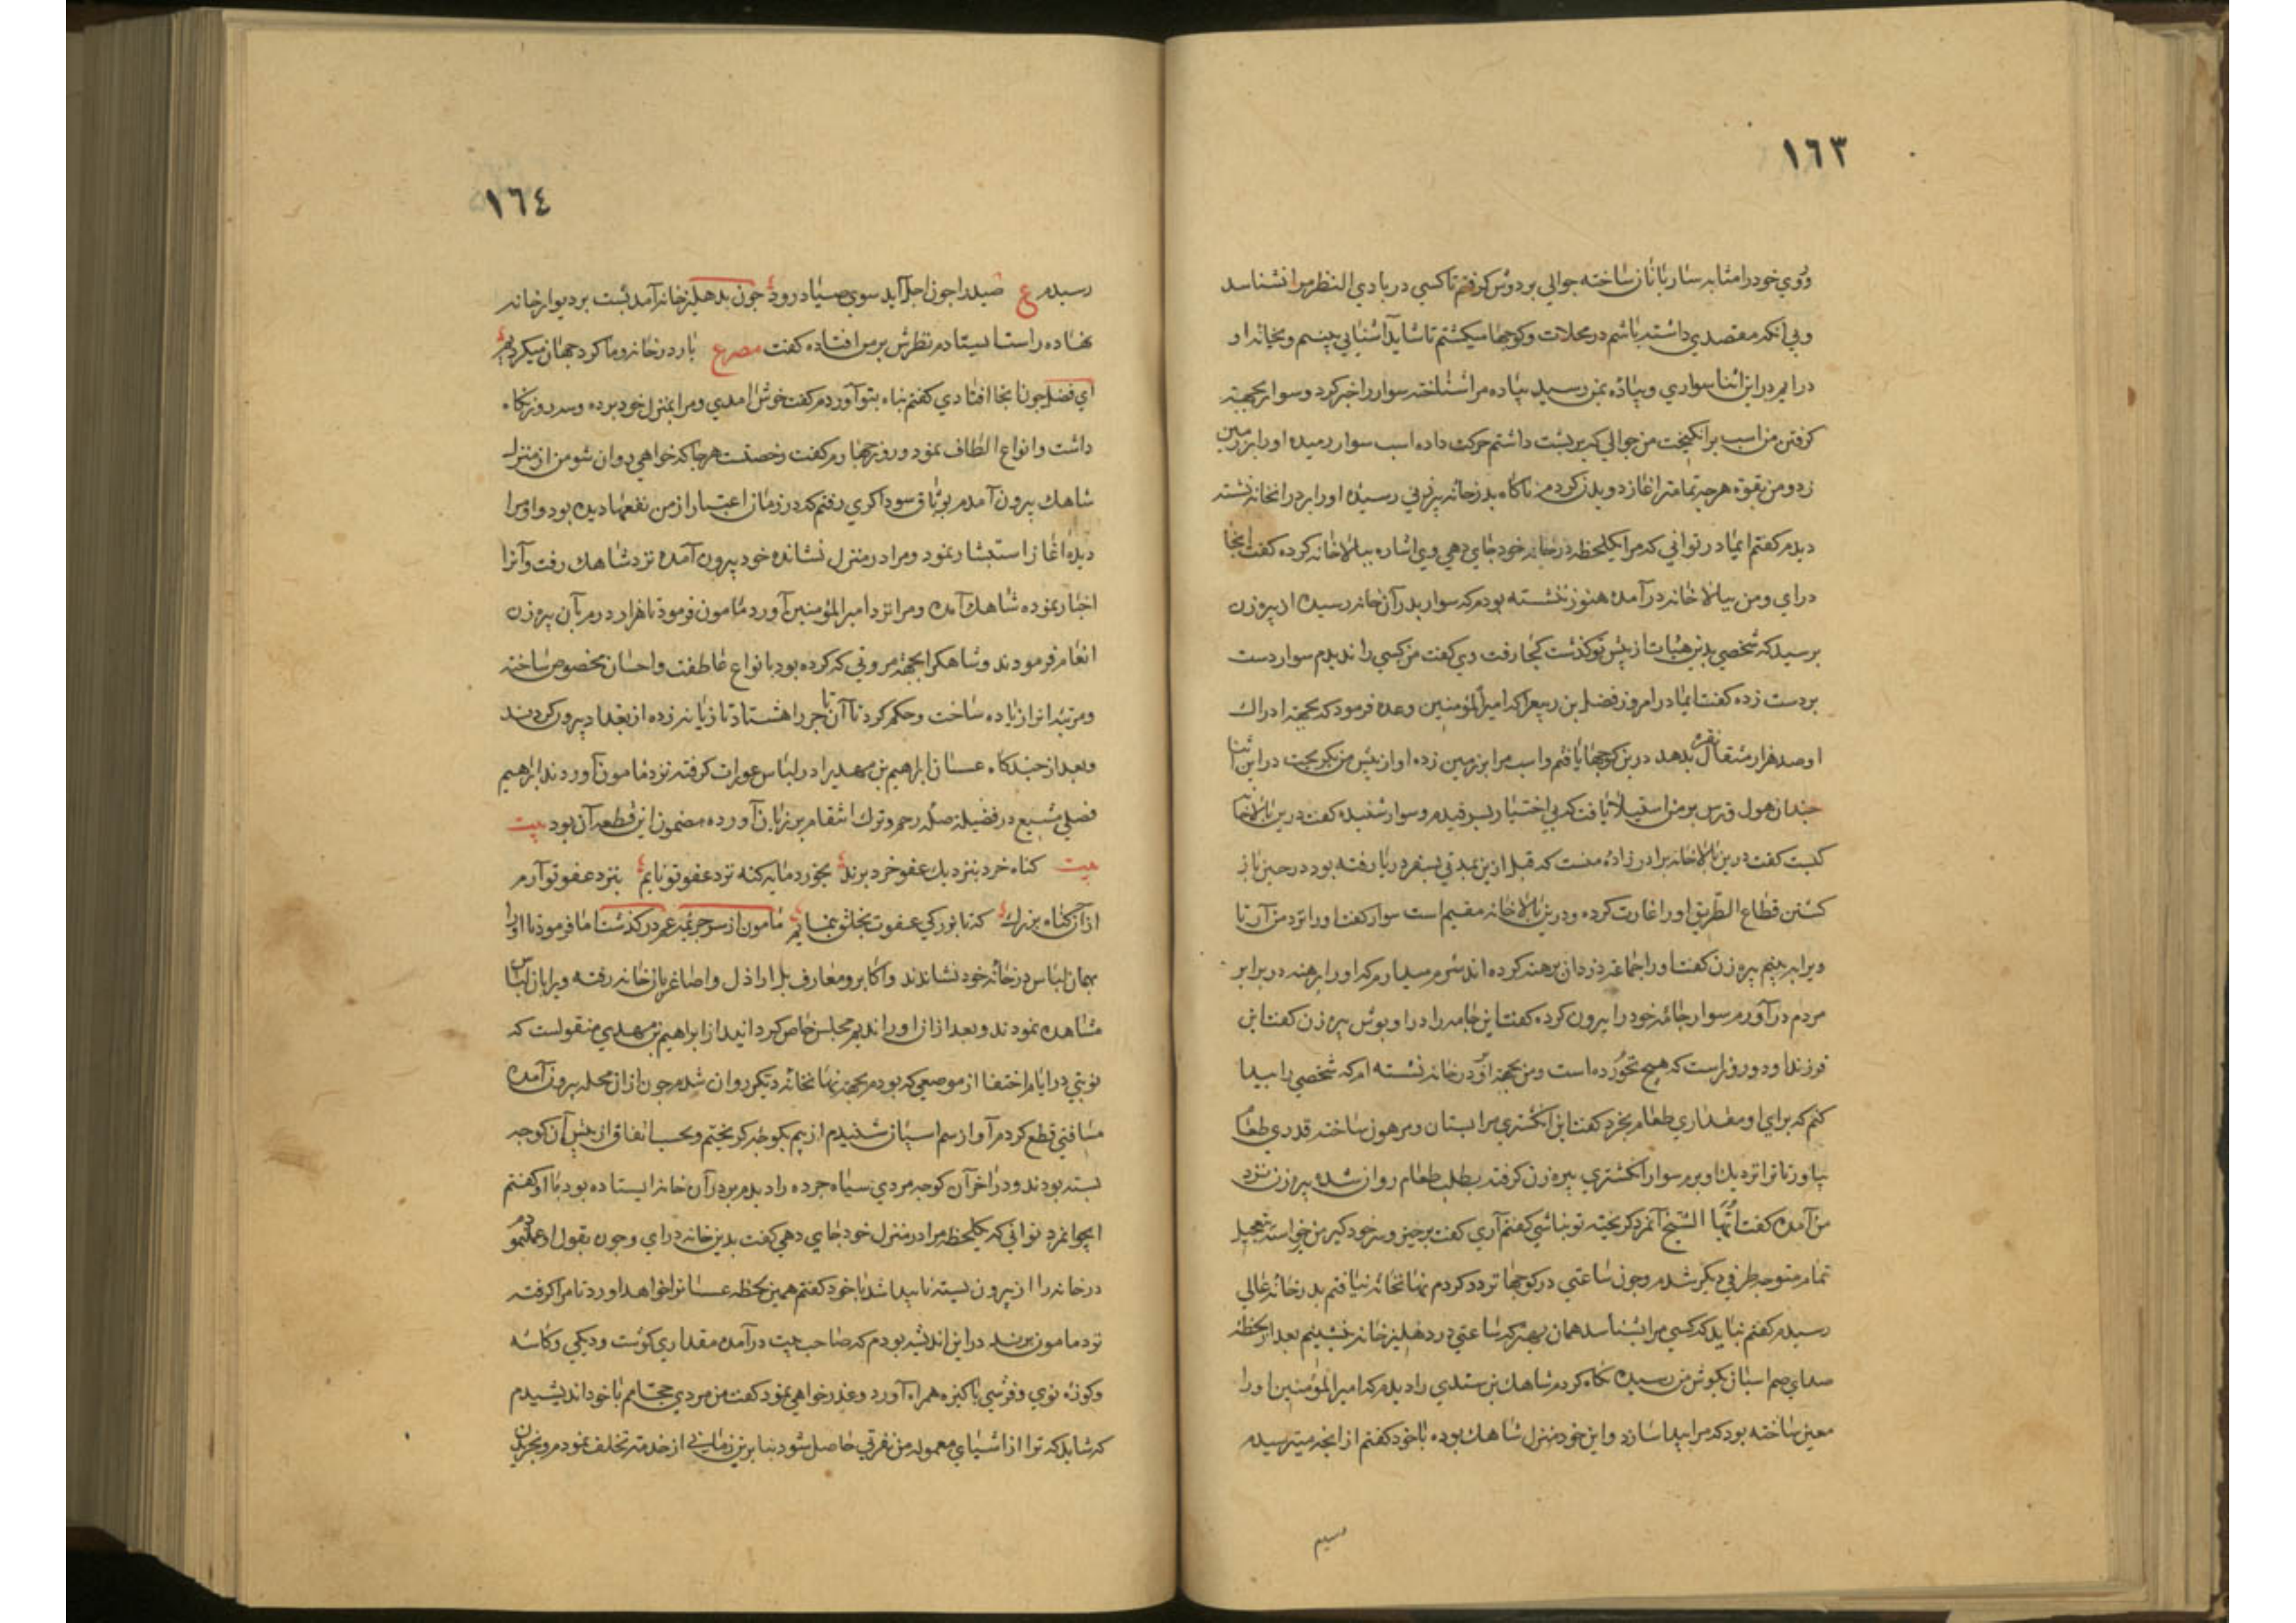 ١٦٣
وروي خود را مشابه ساربانان ساخته جوالي بر دوش گرفتم تا كسي در بادي النظر مرا نشناسد
وبي آنكه مقصدي داشته باشم در محلات وكوچها ميگشتم تا شايد آشنايي بينم وبخانه او
درايم دراين اثنا سواري وپياده بمن رسيد پياده مرا شناخته سوار را خبر كرد وسوار بجهة
گرفتن من اسب برانگيخت من جوالي كه بر پشت داشتم حركت داده اسب سوار رميده او را بر زمين
زد ومن بقوة هرچه تمامتر اغاز دويدن كردم ناگاه بدر خانه پيرزني رسيده او را بر در انخانه نشسته
ديدم گفتم ايمادر تواني كه مرا يكلحظه در خانه خود جاي دهي وي اشاره ببالاخانه كرده گفت اينجا
دراي ومن ببالاخانه درآمده هنوز ننشسته بودم كه سوار بدر آن خانه رسيده از پيره زن
پرسيد كه شخصي بدين هيات از پيش تو گذشت كجا رفت وي گفت من كسي را نديدم سوار دست
بر دست زده گفت ايمادر امروز فضل بن ربيع را كه امير المؤمنين وعده فرمود كه بجهة ادراك
او صد هزار مثقال نقره بدهد درين كوچها يافتم واسب مرا بر زمين زده او از پيش من بگريخت دراين اثنا
چندان هول وترس بر من استيلا يافت كه بي اختيار بسرفيدم وسوار شنيده گفت درين بالاخانه
كيست گفت درين بالاخانه برادرزاده منست كه قبل ازين بمدتي بسفر دريا رفته بود در حين باز
گشتن قطاع الطريق او را غارت كرده ودرين بالاخانه مقيم است سوار گفت او را نزد من آر تا
ويرا ببينم پيره زن گفت او را جماعه دزدان برهنه كرده اند شرم ميدارم كه او را برهنه در برابر
مردم درآورم سوار جامه خود را بيرون كرده گفت اين جامه را در او پوش پيره زن گفت اين
فرزند او دو روز است كه هيچ نخورده است ومن بجهة او در خانه نشسته ام كه شخصي را پيدا
كنم كه براي او مقداري طعام بخرد گفت اين انگشتري مرا بستان ومرهون ساخته قدري طعام
بياور تا ترا نزديك او برم سوار انگشتري پيره زن گرفته بطلب طعام روان شده پيره زن نزد
من آمده گفت ايها الشيخ آنمرد گريخته تو نباشي گفتم آري گفت برخيز وسر خود گير من خواسته بتعجيل
تمام متوجه طرفي ديگر شدم وچون ساعتي در كوچها تردد كردم نهانخانه نيافتم بدر خانه عالي
رسيدم گفتم نبايد كه كسي مرا بشناسد همان بهتر كه ساعتي در دهليز خانه بنشينم بعد از لحظه
صداي سم اسبان بگوش من رسيده نگاه كردم شاهك بن سندي را ديدم كه امير المؤمنين او را
معين ساخته بود كه مرا پيدا سازد واين خود منزل شاهك بوده با خود گفتم از انچه ميترسيدم
رسيدم
١٦٤
رسيدم ع صيد را چون اجل آيد سوي صياد رود چون بدهليز خانه آمد پشت بر ديوار خانه
نهاده راست ايستادم نظرش بر من افتاده گفت مصرع يار در خانه وما گرد جهان ميگرديم
اي فضل چون اينجا افتادي گفتم پناه بتو آوردم گفت خوش امدي ومرا بمنزل خود برده وسه روز نگاه
داشت وانواع الطاف نمود وروز چهارم گفت رخصتست هرجا كه خواهي روان شو من از منزل
شاهك بيرون آمدم بوثاق سوداگري رفتم كه در زمان اعتبار از من نفعها ديده بود واو مرا
ديده اغاز استبشار نمود ومرا در منزل نشانده خود بيرون آمده نزد شاهك رفت وآنرا
اخبار نموده شاهك آمده ومرا نزد امير المؤمنين آورد مامون فرمود تا هزار درم بآن پيره زن
انعام فرمودند وشاهك را بجهة مروتي كه كرده بود بانواع عاطفت واحسان مخصوص ساخته
ومرتبه او را زياده ساخت وحكم كرد تا آن تاجر را هشتاد تازيانه زده از بغداد بيرون كردند
وبعد از چندگاه عسسان ابراهيم بن مهدي را در لباس عورات گرفته نزد مامون آوردند ابراهيم
فصلي مشبع در فضيلة صله رحم وترك انتقام بر زبان آورده مضمون اين قطعه آن بود بيت
بيت گناه خرد بنزديك عفو خرد برند بخورد مايه گنه نزد عفو تو نايم بنزد عفو تو آرم
از آن گناه بزرگ كه تا بزرگي عفوت بخلق بنمايم مامون از سر جريمه عم درگذشت اما فرمود تا او را
بهمان لباس در خانه خود نشاندند واكابر ومعارف بل اراذل واصاغر بآن خانه رفته ويرا بان لباس
مشاهده نمودند وبعد از ان او را نديم مجلس خاص گردانيد از ابراهيم بن مهدي منقولست كه
نوبتي در ايام اختفا از موضعي كه بودم بجهة نهانخانه ديگر روان شدم چون از ان محله بيرون آمده
مسافتي قطع كردم آواز سم اسپان شنيدم از بيم بكوچه گريختم وبحسب اتفاق از پيش آن كوچه
بسته بودند ودر اخر آن كوچه مردي سياه چرده را ديدم بر در آن خانه ايستاده بود با او گفتم
ايجوانمرد تواني كه يكلحظه مرا در منزل خود جاي دهي گفت بدين خانه دراي وچون بقول او عمل نمودم
در خانه را از بيرون بسته ناپيدا شد با خود گفتم همين لحظه عسسانرا خواهد اورد تا مرا گرفته
نزد مامون برند دراين انديشه بودم كه صاحب بيت درآمده مقداري گوشت وديگي وكاسه
وكوزه نوي وفرشي پاكيزه همراه آورد وعذرخواهي نمود گفت من مردي حجامم با خود انديشيدم
كه شايد كه ترا از اشياي معموله من نفرتي حاصل شود بنا برين زماني از خدمت تخلف نمودم